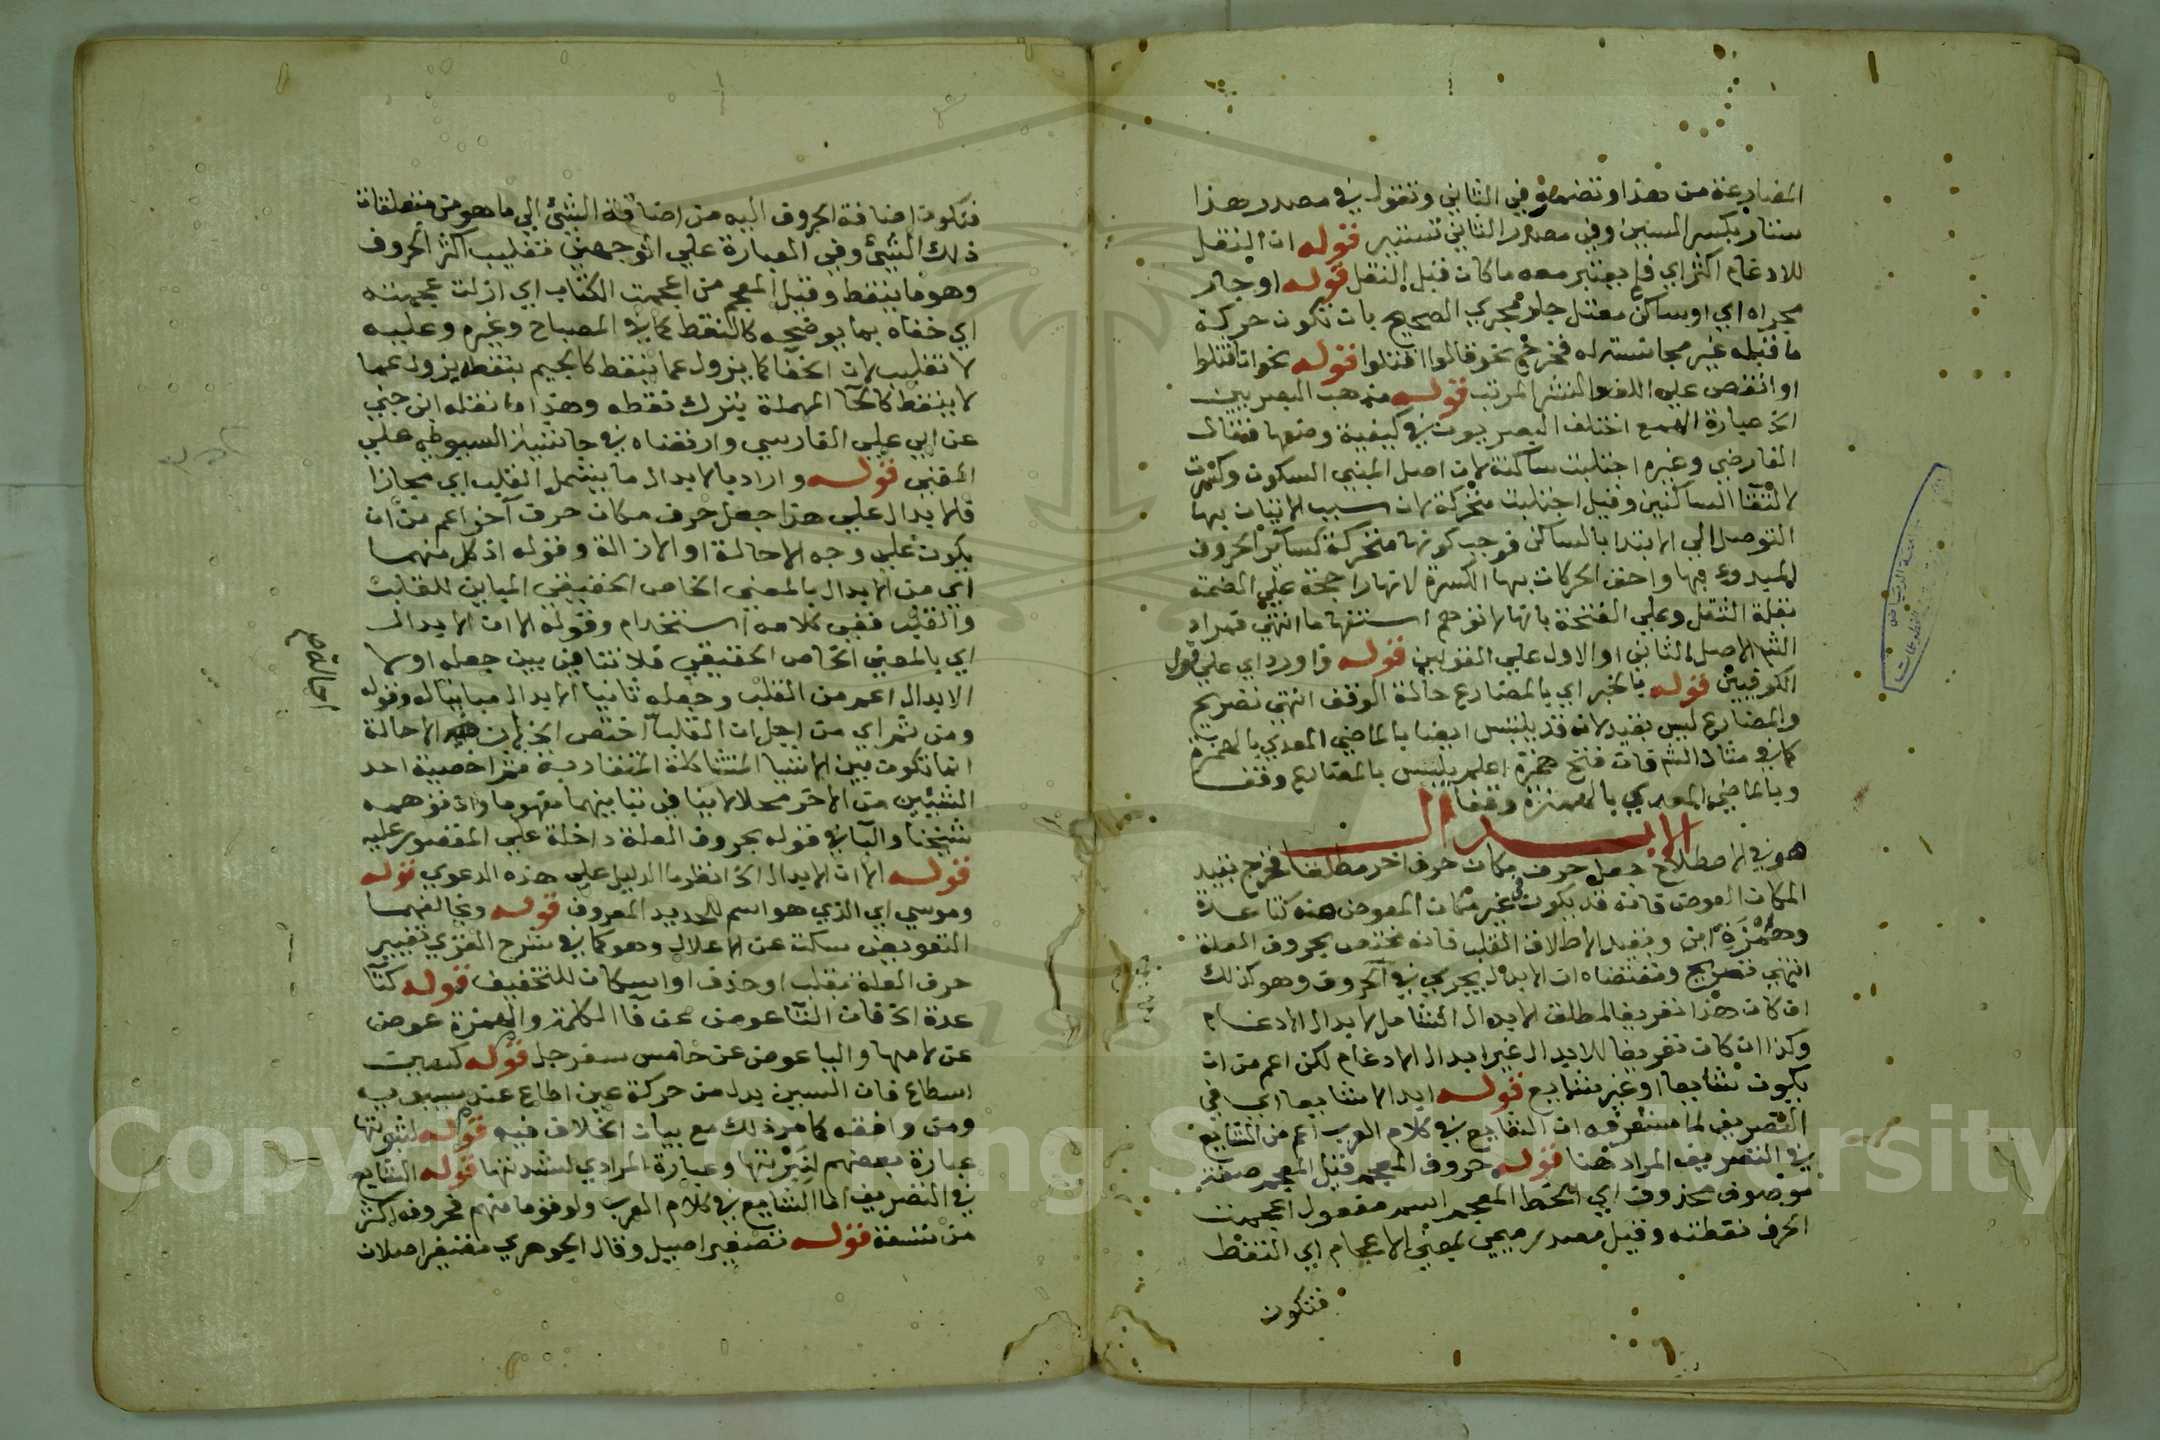 المضارعة من هذا وتضمها في الثاني وتقول في مصدر هذا
ستار بكسر السين وفي مصدر الثاني تستير قوله ان النقل
للادغام اكثر اي فلم يعتبر معه ما كان قبل النقل قوله او جار
مجراه اي او ساكن معتل جار مجري الصحيح بان تكون حركة
ما قبله غير مجانسة له فخرج نحو قالوا اقتتلوا قوله نحوات اقتتلوا
او انقص علي اللف والنشر المرتب قوله مذهب البصريين
الخ عبارة الهمع اختلف البصريون في كيفية وضعها فقال
الفارضي وغيره اجتلبت ساكنة لان اصل المبني السكون وكسرت
لالتقا الساكنين وقيل اجتلبت متحركة لان سبب الاتيان بها
التوصل الي الابتدا بالساكن فوجب كونها متحركة كسائر الحروف
المبدوء بها واحق الحركات بها الكسرة لانها راجحة علي الضمة
بقلة الثقل وعلي الفتحة بانها لا توهم استفهاما انتهي فمراد
الشم الاصل الثاني او الاول علي القولين قوله واورد اي علي قول
الكوفيين قوله بالخبر اي بالمضارع حالة الوقف انتهي تصريح
والمضارع ليس بقيد لانه قد يلتبس ايضا بالماضي المعدي بالهمزة
كما في مثال الشم فان فتح همزة اعلم يلبس بالمضارع وقفا
وبالماضي المعدي بالهمزة وقفا
الابدال
هو في الاصطلاح جعل حرف مكان حرف اخر مطلقا فخرج بقيد
المكان العوض فانه قد يكون في غير مكان المعوض منه كتا عدة
وهمزة ابن وبقيد الاطلاق القلب فانه مختص بحروف العلة
انتهي تصريح ومقتضاه ان الابدال يجري في الحروف وهو كذلك
ان كان هذا تعريفا لمطلق الابدال الشامل لابدال الادغام
وكذا ان كان تعريفا للابدال غير ابدال الادغام لكن اعم من ان
يكون شايعا او غير شايع قوله ابدالا شايعا اي في
التصريف لما ستعرفه ان الشايع في كلام العرب اعم من الشايع
في التصريف المراد هنا قوله حروف المعجم قبل المعجم صفة
موصوف محذوف اي الخط المعجم اسم مفعول اعجمت
الحرف نقطته وقيل مصدر ميمي بمعني الاعجام اي النقط
فتكون
فتكون اضافة الحروف اليه من اضافة الشئ الي ما هو من متعلقات
ذلك الشئ وفي العبارة علي الوجهين تغليب اكثر الحروف
وهو ما ينقط وقيل المعجم من اعجمت الكتاب اي ازلت عجمته
اي خفاه بما يوضحه كالنقط كما في المصباح وغيره وعليه
لا تغليب لان الخفا كما يزول عما ينقط كالجيم بنقطه يزول عما
لا ينقط كالحا المهملة بترك نقطه وهذا ما نقله ابن جني
عن ابي علي الفارسي وارتضاه في حاشية السيوطي علي
المغني قوله واراد بالابدال ما يشمل القلب اي مجازا
فالابدال علي هذا جعل حرف مكان حرف آخر اعم من ان
يكون علي وجه الاحالة او الازالة وقوله اذ كل منهما
اي من الابدال بالمعني الخاص الحقيقي المباين للقلب
والقلب ففي كلامه استخدام وقوله الا ان الابدال
اي بالمعني الخاص الحقيقي فلا تنافي بين جعله اولا
الابدال اعم من القلب وجعله ثانيا الابدال مباينا له وقوله
ومن ثم اي من اجل ان القلب اختص الخ لان الاحالة
انما تكون بين الاشيا المتشاكلة المتقاربة فتراخصية احد
الشيئين من الاخر محلا لا ينافي تباينهما مفهوما والا توهمه
شيخنا والبا في قوله بحروف العلة داخلة علي المقصور عليه
قوله الا ان الابدال الخ انظر ما الدليل علي هذه الدعوي قوله
وموسي اي الذي هو اسم للحديد المعروف قوله ويخالفهما
التعويض سكت عن الاعلال وهو كما في شرح العزي تغيير
حرف العلة بقلب او حذف او اسكان للتخفيف قوله كتا
عدة الخ فان التا عوض عن فا الكلمة والهمزة عوض
عن لامها واليا عوض عن خامس سفرجل قوله كسين
اسطاع فان السين بدل من حركة عين اطاع عند سيبويه
ومن وافقه كما مر ذلك مع بيان الخلاف فيه قوله لثبوتها
عبارة بعضهم لنبرتها وعبارة المرادي لشدتها قوله الشايع
في التصريف اما الشايع في كلام العرب ولو قوما منهم فحروفه اكثر
من تسعة قوله تصغير اصيل وقال الجوهري تصغير اصلان